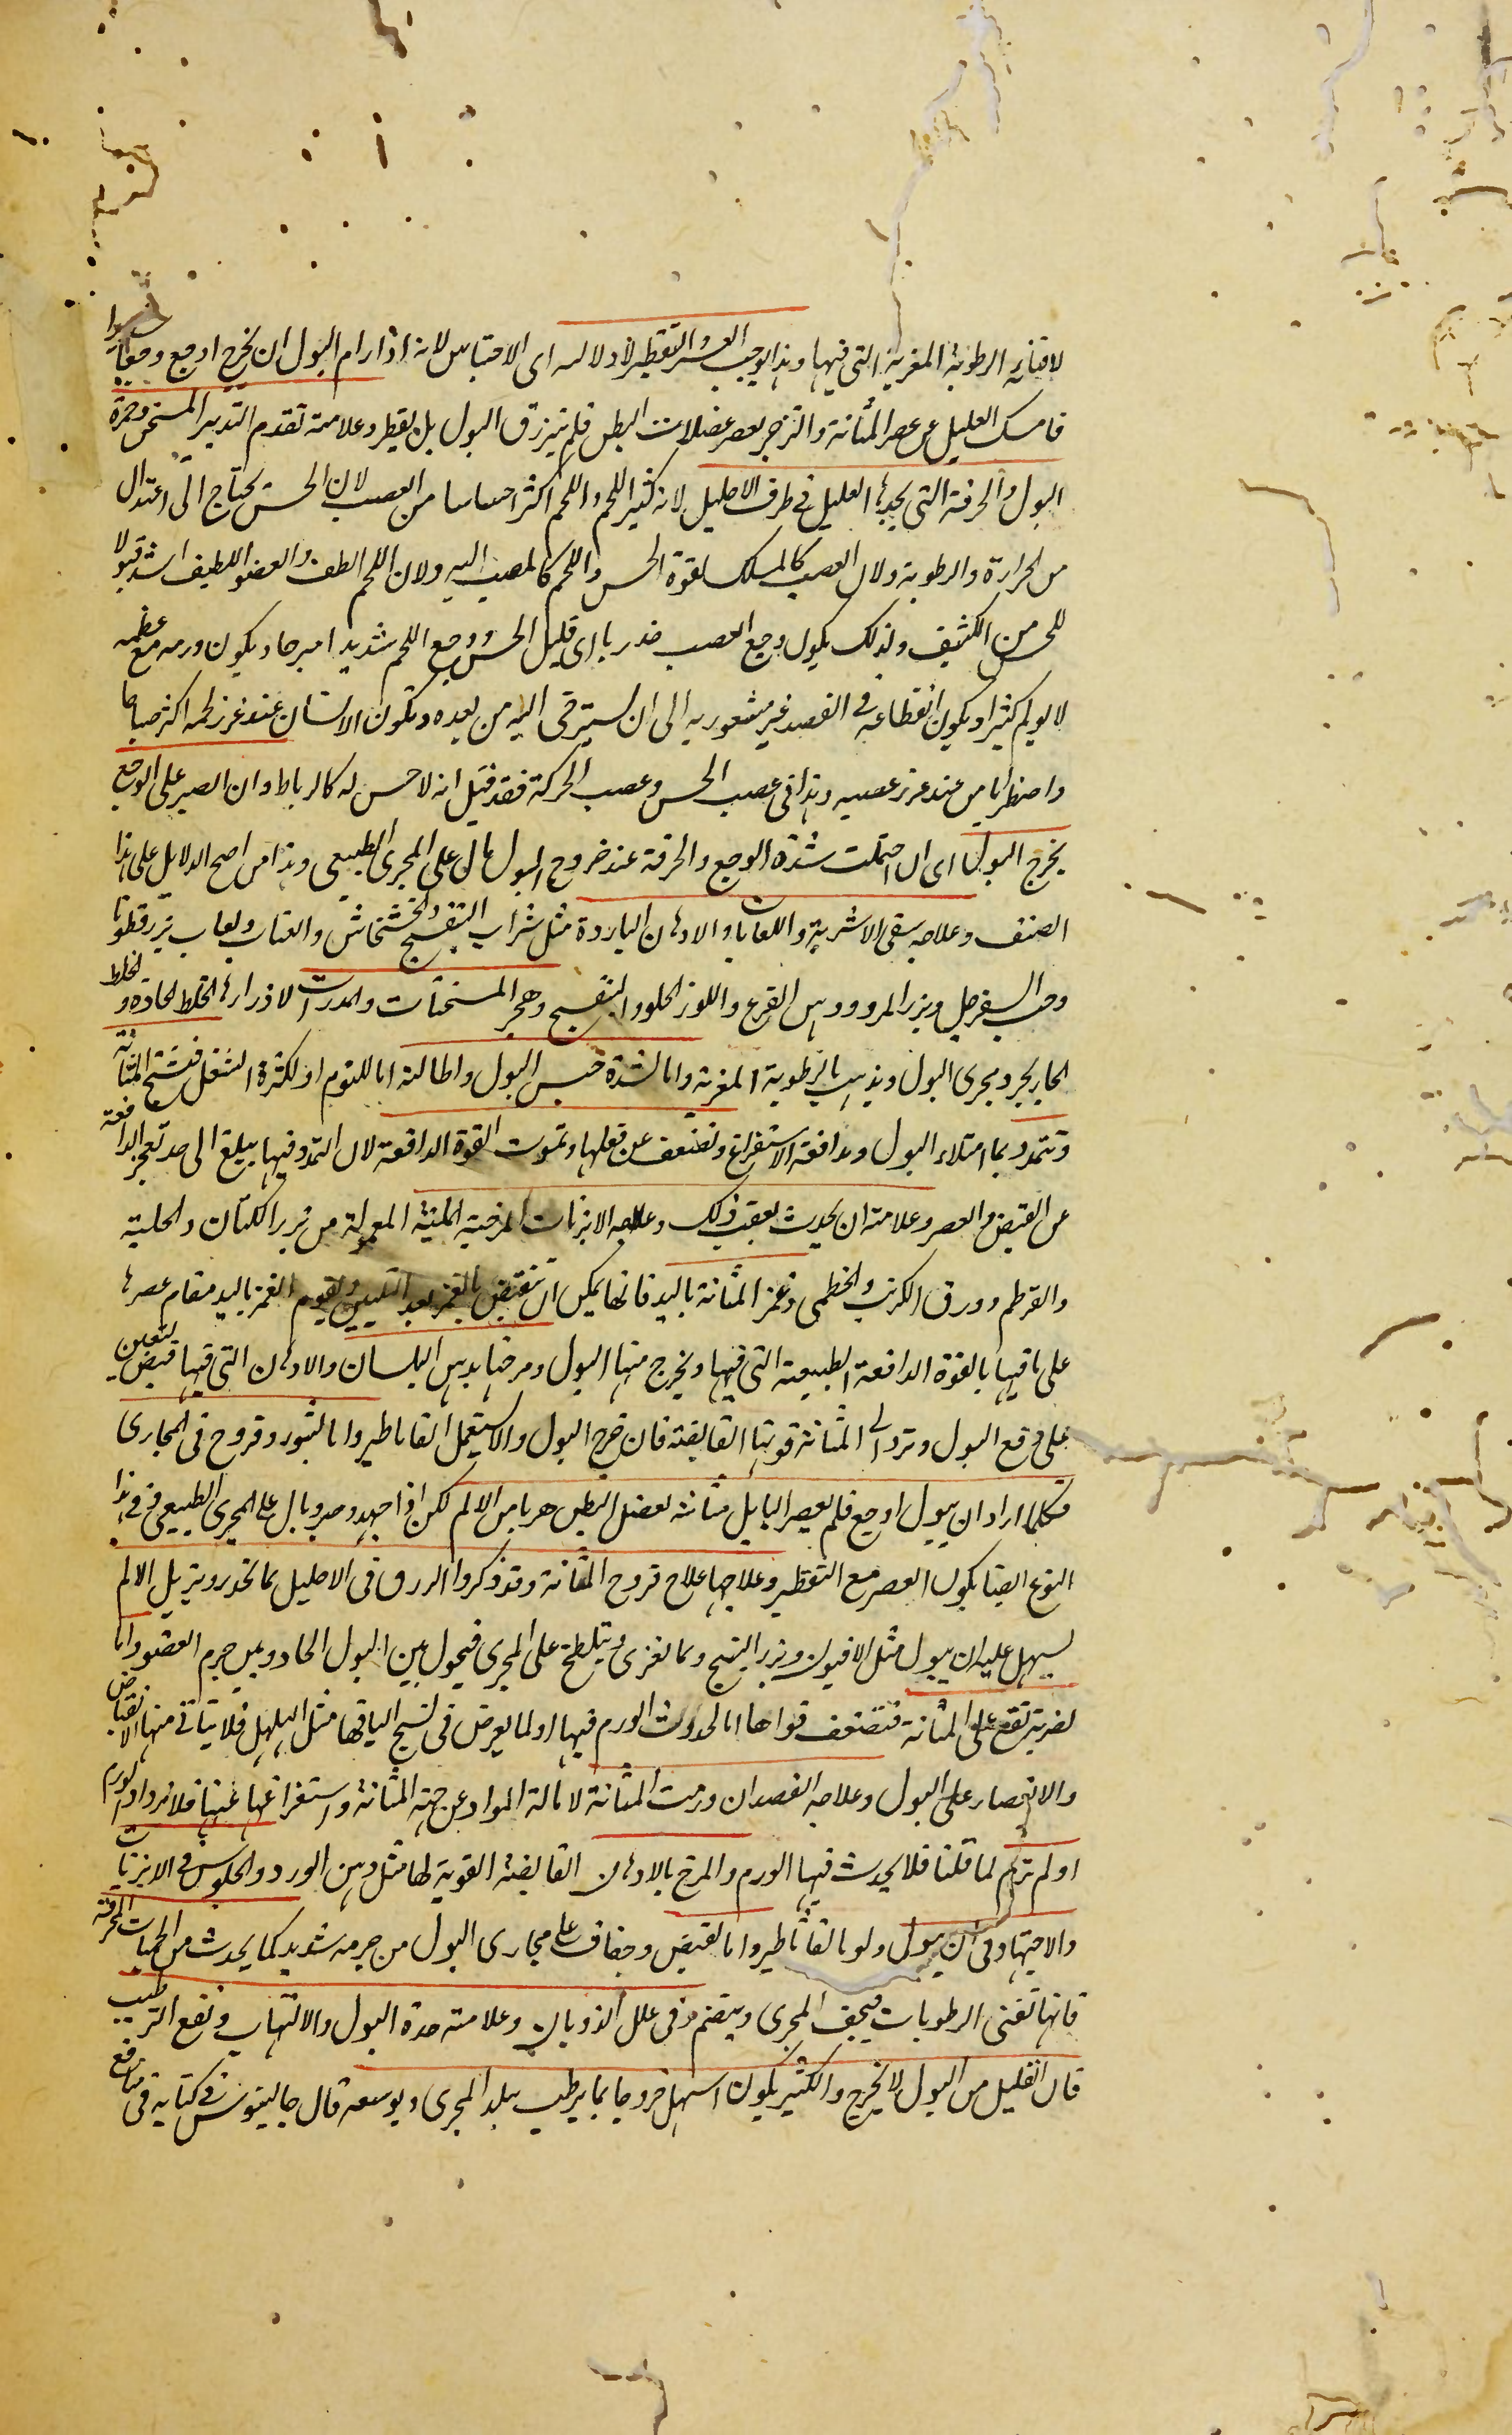 لافنائه الرطوبة المغرية التى فيها وهذا يوجب العسر والتقطير لا دلالة اى الاحتباس لانه اذا رام البول ان يخرج اوجع وجعا
فامسك العليل عن عصر المثانة والتزحر بعصر عضلات البطن فلم ينزرق البول بل يقطر وعلامته تقدم التدبير المسخن وحمرة
البول والحرقة التى يجدها العليل فى طرف الاحليل لانه كثير اللحم واللحم اكثر احساسا من العصب لان الحس يحتاج الى اعتدال
من الحرارة والرطوبة ولان العصب كالمسلك لقوة الحس واللحم كالمصب اليه ولان اللحم الطف والعضو اللطيف اشد قبولا
للحس من الكثيف ولذلك يكون وجع العصب خدريا اى قليل الحس ووجع اللحم شديدا مبرحا ويكون ورمه مع عظمه
لا يولم كثيرا ويكون انقطاعه فى الفصد غير مشعور به الى ان يسترخى اليه من بعده وتكون الانسان عند غرز لحمه اكثر صياحا
واضطرابا من عند غرز عصبه وهذا فى عصب الحس وعصب الحركة فقد قيل انه لا حس له كالرباط وان الصبر على الوجع
يخرج البول اى ان احتملت شدة الوجع والحرقة عند خروج البول بال على المجرى الطبيعى وهذا من اصح الدلايل على هذا
الصنف وعلاجه سقى الاشربة واللعابات والادهان الباردة مثل شراب البنفسج والخشخاش والعناب ولعاب بزرقطونا
وحب السفرجل وبزر المرو ودهن القرع واللوز الحلو والبنفسج وهجر المسخنات والمدرات لادرارها الخلط الحاد والخلط
الحار يجرد مجرى البول ويذهب بالرطوبة المغرية واما لشدة حبس البول واطالته اما للنوم او لكثرة الشغل فتنسخ المثانة
وتتمدد بما امتلاء البول ومدافعة الاستفراغ وتضعف عن فعلها وتموت القوة الدافعة لان التمدد فيها يبلغ الى حد تعجز الدافعة
عن القبض والعصر وعلامته ان يحدث بعقب ذلك وعلاجه الابزنات المرخية الملينة المعمولة من بزر الكتان والحلبة
والقرطم وورق الكرنب والخطمى وغمز المثانة باليد فانها يمكن ان تنقبض بالغمز بعد التليين ويقوم الغمز باليد مقام عصرها
على ما فيها بالقوة الدافعة الطبيعية التى فيها ويخرج منها البول ومرخها بدهن البلسان والادهان التى فيها قبض ليعين
على دفع البول وترد الى المثانة قوتها القابضة فان خرج البول والا يستعمل القاثاطير واما لبثور وقروح فى المجارى
فكلما اراد ان يبول اوجع فلم يعصر البايل مثانته بعضل البطن هربا من الالم لكن اذا جهد وصبر وبال على المجرى الطبيعى ففى هذا
النوع ايضا يكون العصر مع التقطير وعلاجها علاج قروح المثانة وقد ذكروا الزرق فى الاحليل بما يخدر ويزيل الالم
ليسهل عليه ان يبول مثل الافيون وبزر البنج وبما يغرى ويتلطخ على المجرى فيحول بين البول الحاد وبين جرم العضو واما
لضربة تقع على المثانة فتضعف قواها اما لحدوث الورم فيها او لما يعرض فى نسيج اليافها مثل الهلهل فلا يتاتى منها الانقباض
والانعصار على البول وعلاجه الفصد ان ورمت المثانة لامالة المواد عن جهة المثانة واستفراغها عنها فلا يزداد الورم
او لم ترم لما قلنا فلا يحدث فيها الورم والمرخ بالادهان القابضة القوية لها مثل دهن الورد والجلوس فى الابزنات
والاجتهاد فى ان يبول ولو بالقاثاطير واما لقبض وجفاف على مجارى البول من حرمه شديد كما يحدث من الحميات المحرقة
فانها تفنى الرطوبات فيجف المجرى وينضم وفى علل الذوبان وعلامته حدة البول والالتهاب ونفع الترطيب
فان القليل من البول لا يخرج والكثير يكون اسهل خروجا بما يرطب يبل المجرى ويوسعه قال جالينوس فى كتابه فى منافع